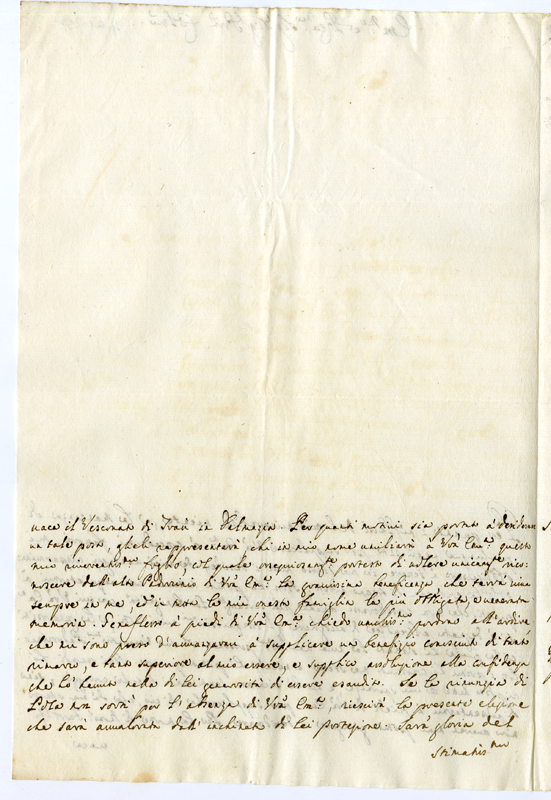 uace il Vescovato di Traù in Dalmazia. Per quanti motivi sia portato à desiderare
un tale posto, glieli rappresenterà, chi in mio nome umilierà à Vra Em.ª questo
mio riverentis.mo foglio, col quale ossequiosam.te protesto di voler unicam.te rico:
noscere dall'alto Padrocinio di Vra Em.ª la gravissima beneficenza, che terrà viva
sempre in me, ed in tutta la mia onesta famiglia la più obbligata, e venerata
memoria. Genuflesso à piedi di Vra Em.ª chiedo umiliss.º perdono all'ardire
che mi sono preso d'avanzarmi à supplicare un beneficio conosciuto di tanto
rimarco, e tanto superiore al mio essere, e supplico assoluzione alla confidenza
che hò havuta nella di lei generosità di essere esaudito. Se la rinunzia di
Pola non sortì per l'assenza di Vra Em.ª, riescirà la presente elezione
che sarà avvalorata dall'inchinata di lei protezione. Sarà gloria del
Stimatis.mo